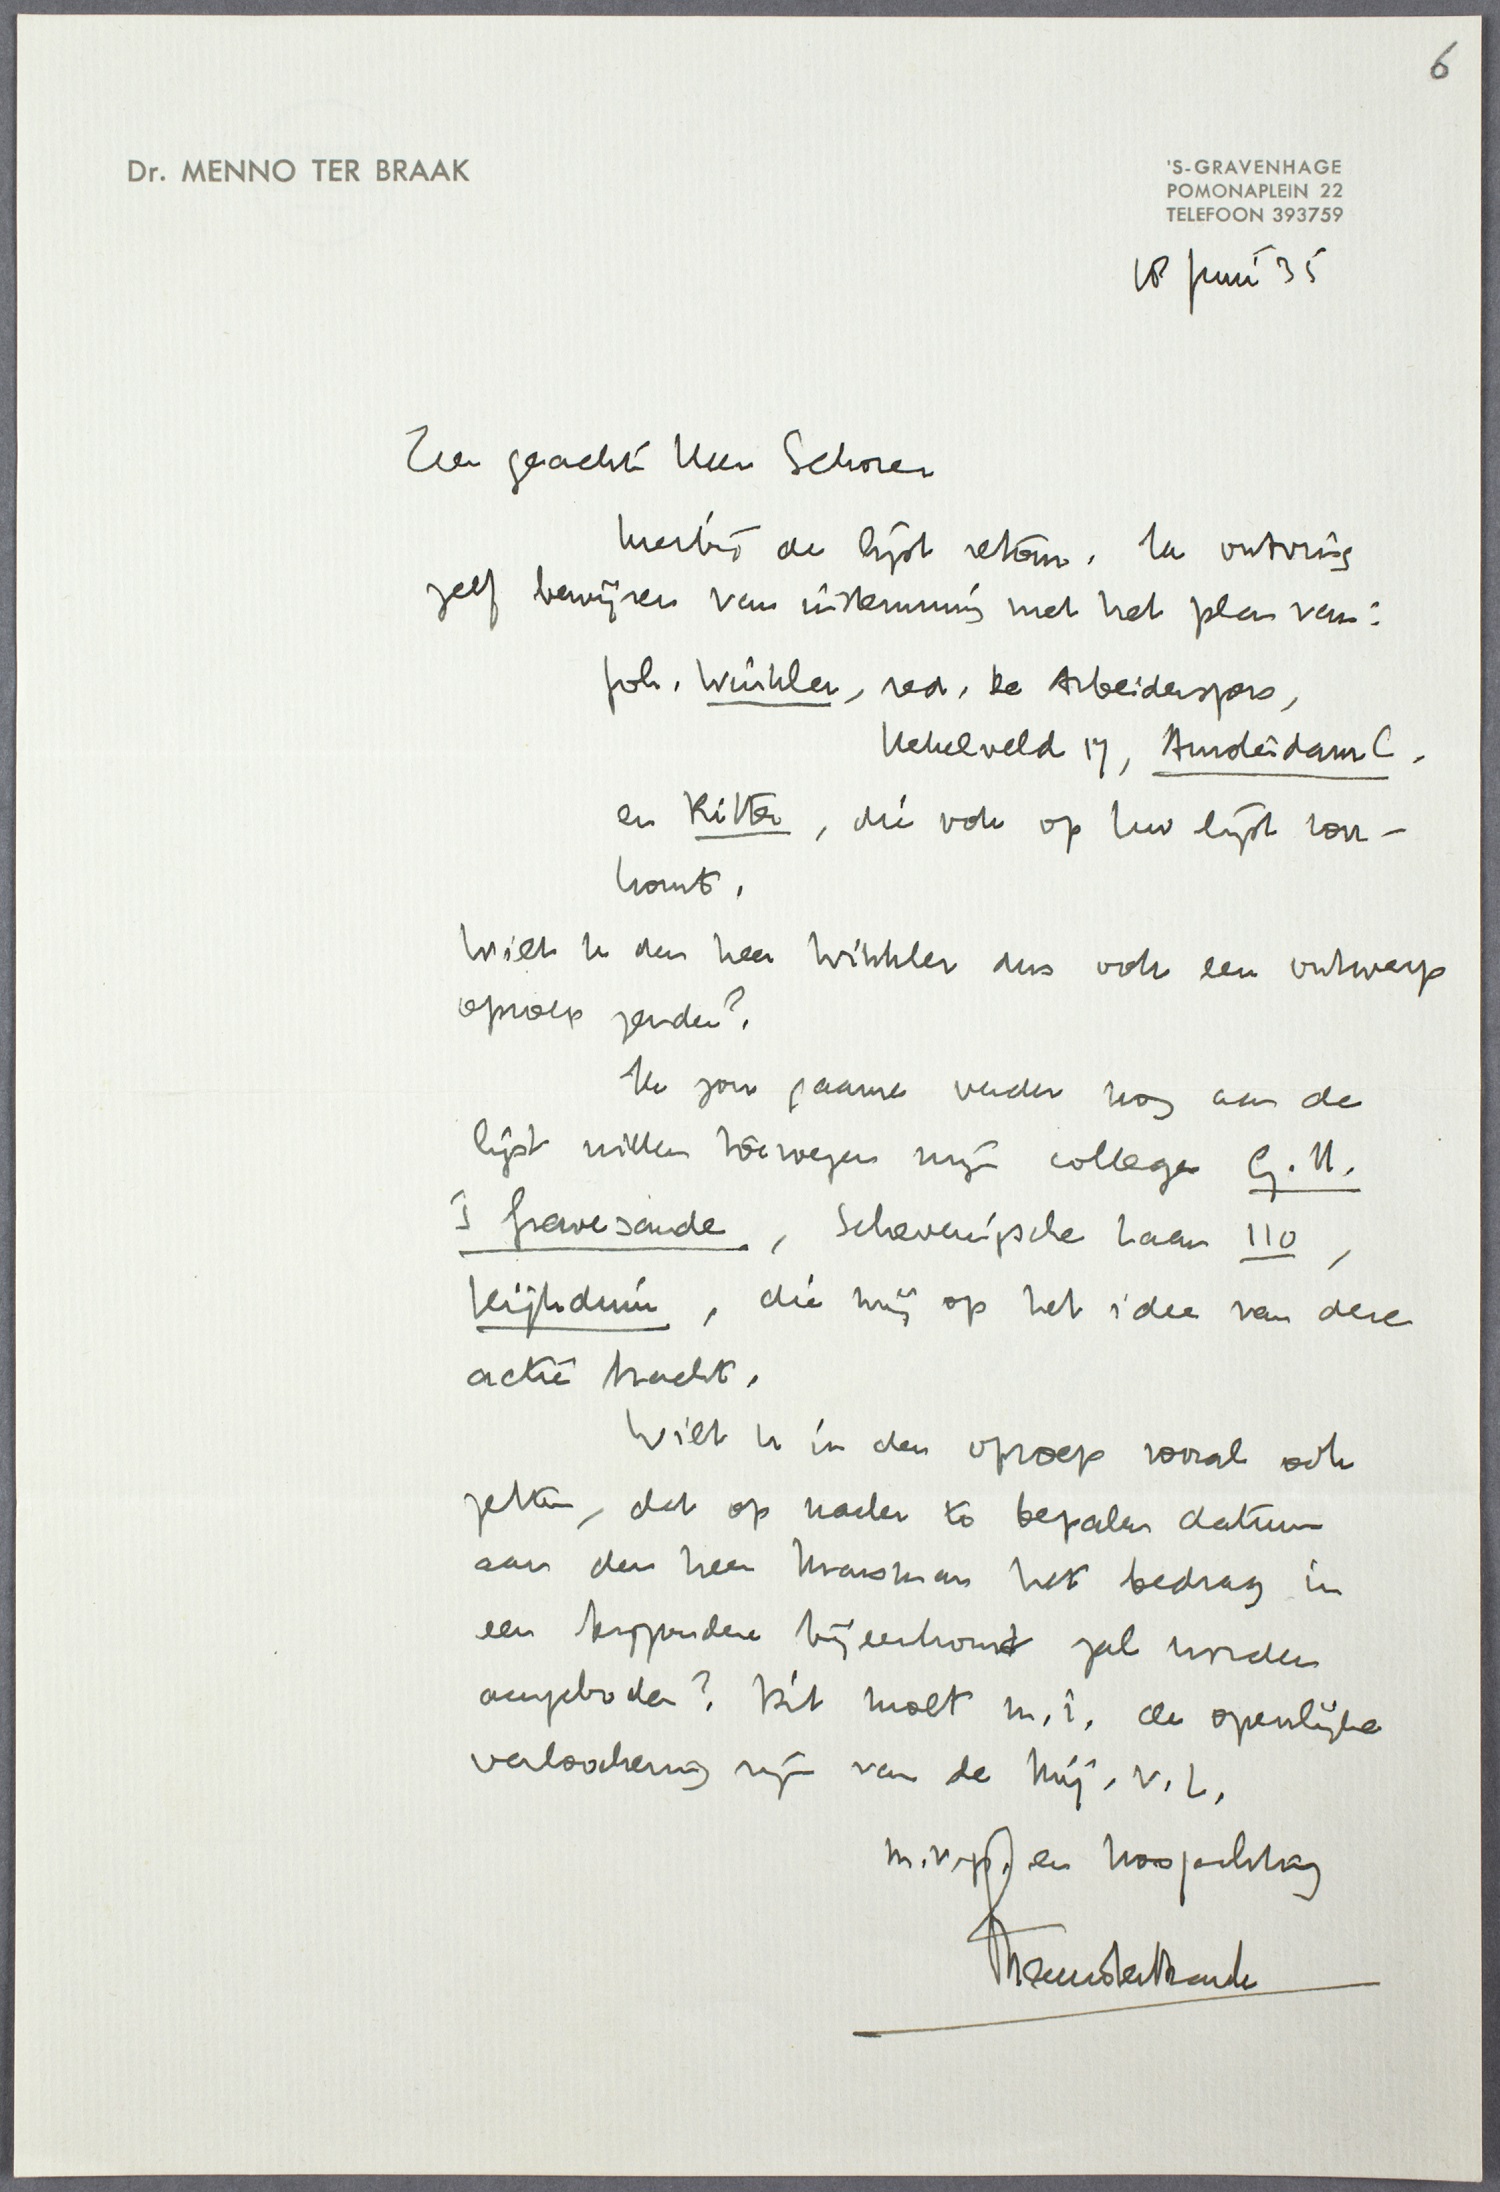 6
Dr. MENNO TER BRAAK
'S-GRAVENHAGE
POMONAPLEIN 22
TELEFOON 393759
18 Juni 35
Zeer geachte Heer Schoren
Hierbij de lijst retour. Ik ontving
zelf bewijzen van instemming met het plan van:
Joh. Winkler, red. De Arbeiderspers,
Hekelveld 17, Amsterdam C.
en Ritter, die ook op Uw lijst voor-
komt.
Wilt U den heer Winkler dus ook een ontwerp
oproep zenden?
Ik zou gaarne verder nog aan de
lijst willen toevoegen mijn collega G.H.
's Gravesande, Scheveningsche laan 110,
Kijkduin, die mij op het idee van deze
actie bracht.
Wilt U in den oproep vooral ook
zetten, dat op nader te bepalen datum
aan den heer Marsman het bedrag in
een bijzondere bijeenkomst zal worden
aangeboden? Dit moet m.i. de openlijke
verloochening zijn van de Mij. v. L.
m.v.gr. en hoogachting
Menno ter Braak